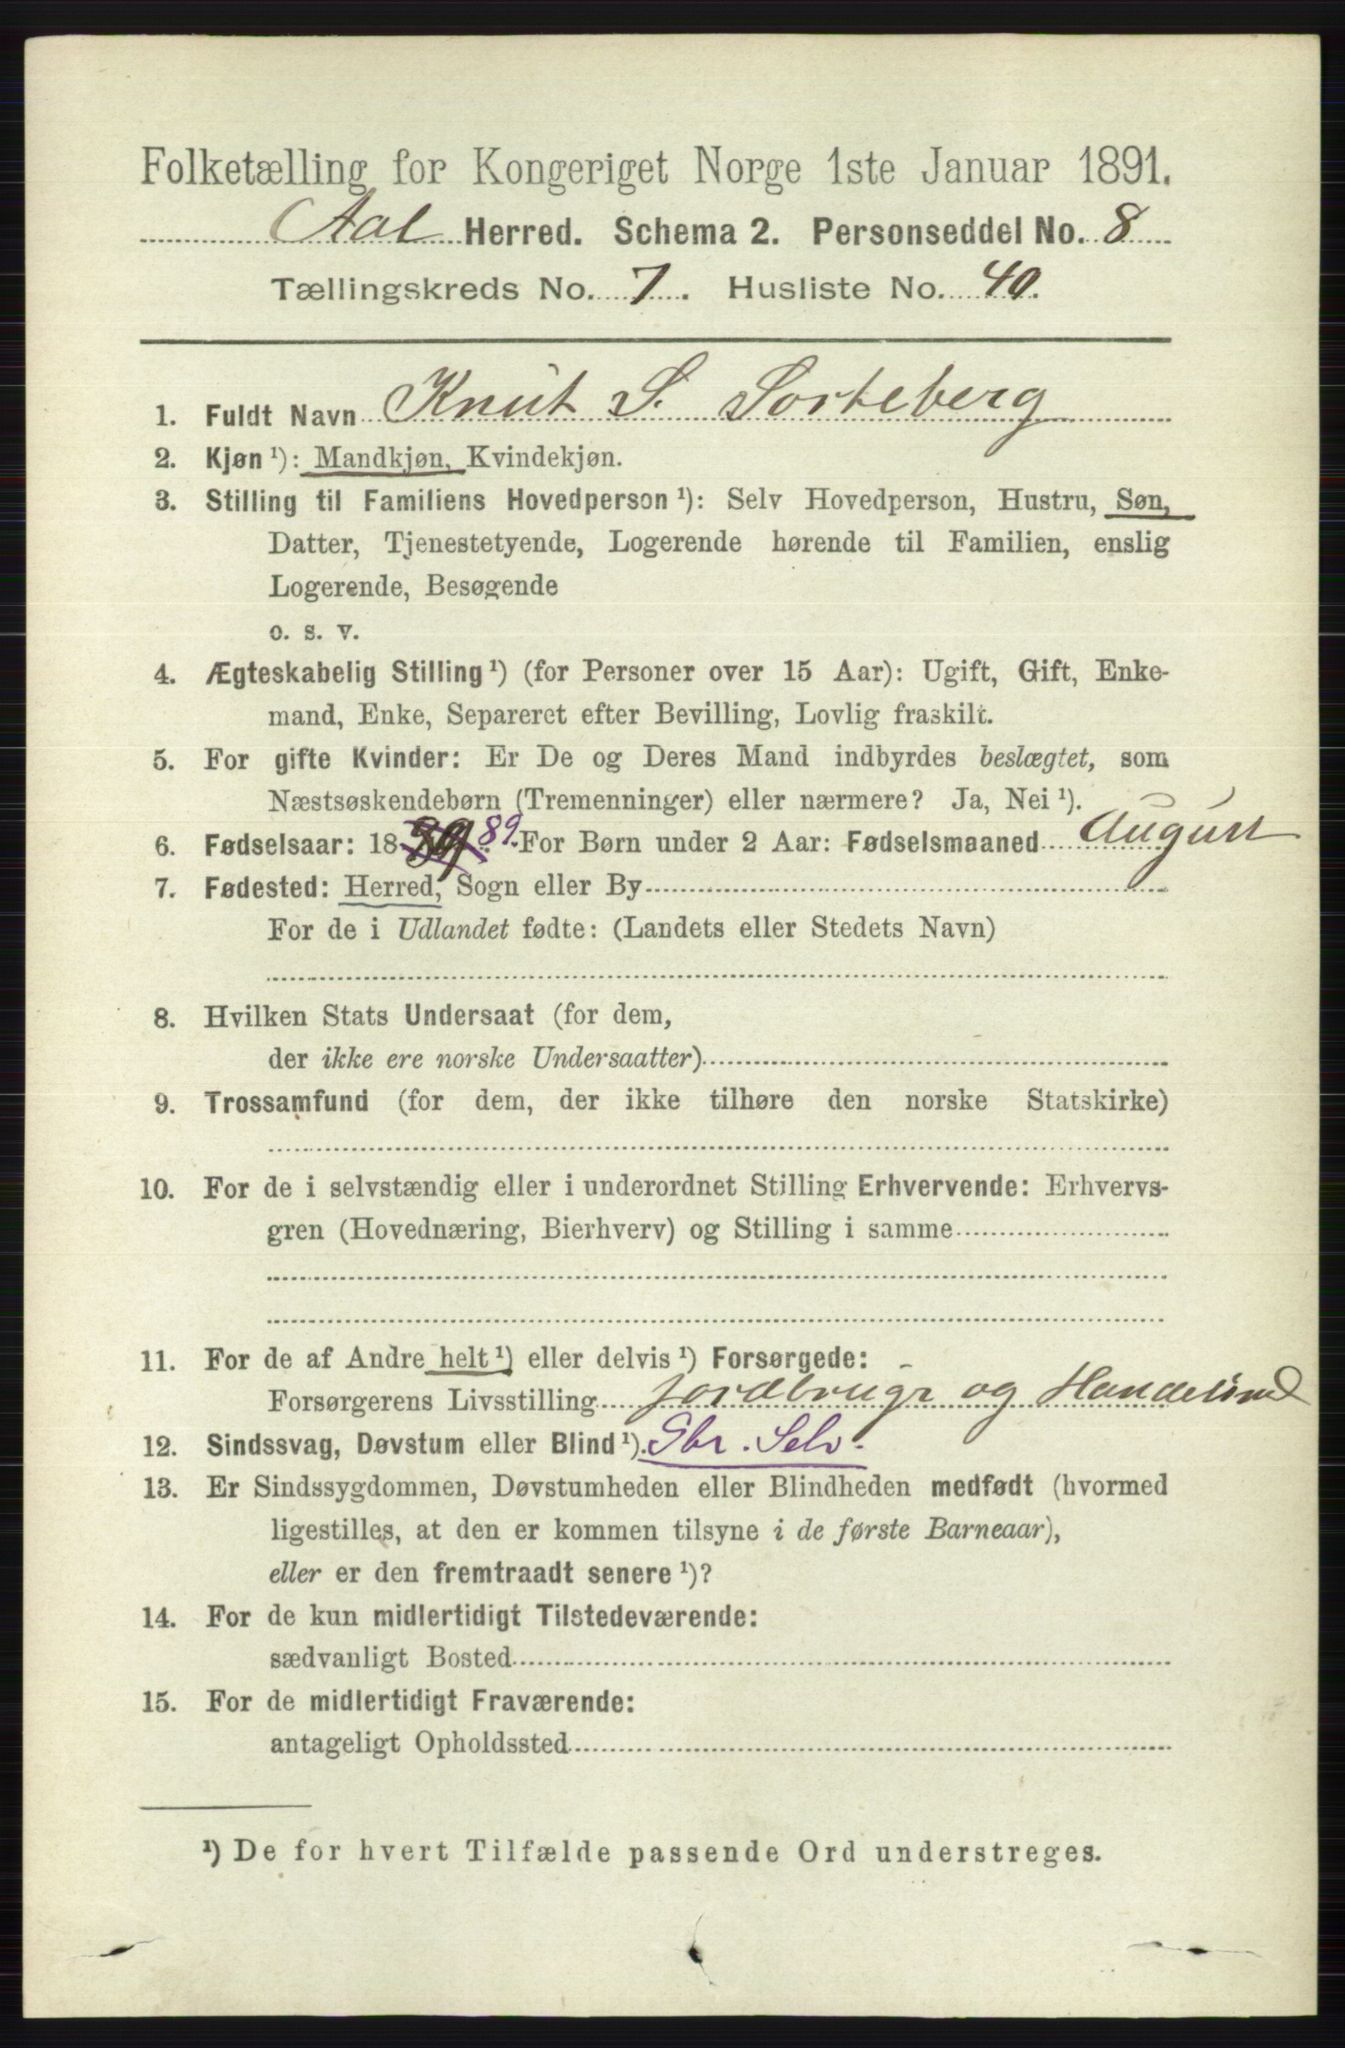 Folketælling for Kongeriget Norge 1ste Januar 1891.
Aal Herred. Schema 2. Personseddel No. 8
Tællingskreds No. 7. Husliste No. 40.
1. Fuldt Navn Knut S. Sorteberg
2. Kjøn ¹): Mandkjøn, Kvindekjøn.
3. Stilling til Familiens Hovedperson ¹): Selv Hovedperson, Hustru, Søn,
Datter, Tjenestetyende, Logerende hørende til Familien, enslig
Logerende, Besøgende
o. s. v.
4. Ægteskabelig Stilling ¹) (for Personer over 15 Aar): Ugift, Gift, Enke-
mand, Enke, Separeret efter Bevilling, Lovlig fraskilt.
5. For gifte Kvinder: Er De og Deres Mand indbyrdes beslægtet, som
Næstsøskendebørn (Tremenninger) eller nærmere? Ja, Nei ¹).
6. Fødselsaar: 18 89. For Børn under 2 Aar: Fødselsmaaned August
7. Fødested: Herred, Sogn eller By
For de i Udlandet fødte: (Landets eller Stedets Navn)
8. Hvilken Stats Undersaat (for dem,
der ikke ere norske Undersaatter)
9. Trossamfund (for dem, der ikke tilhøre den norske Statskirke)
10. For de i selvstændig eller i underordnet Stilling Erhvervende: Erhvervs-
gren (Hovednæring, Bierhverv) og Stilling i samme
11. For de af Andre helt ¹) eller delvis ¹) Forsørgede:
Forsørgerens Livsstilling Jordbrugr og
12. Sindssvag, Døvstum eller Blind ¹). Gbr. Selv.
13. Er Sindssygdommen, Døvstumheden eller Blindheden medfødt (hvormed
ligestilles, at den er kommen tilsyne i de første Barneaar),
eller er den fremtraadt senere ¹)?
14. For de kun midlertidigt Tilstedeværende:
sædvanligt Bosted
15. For de midlertidigt Fraværende:
antageligt Opholdssted
¹) De for hvert Tilfælde passende Ord understreges.